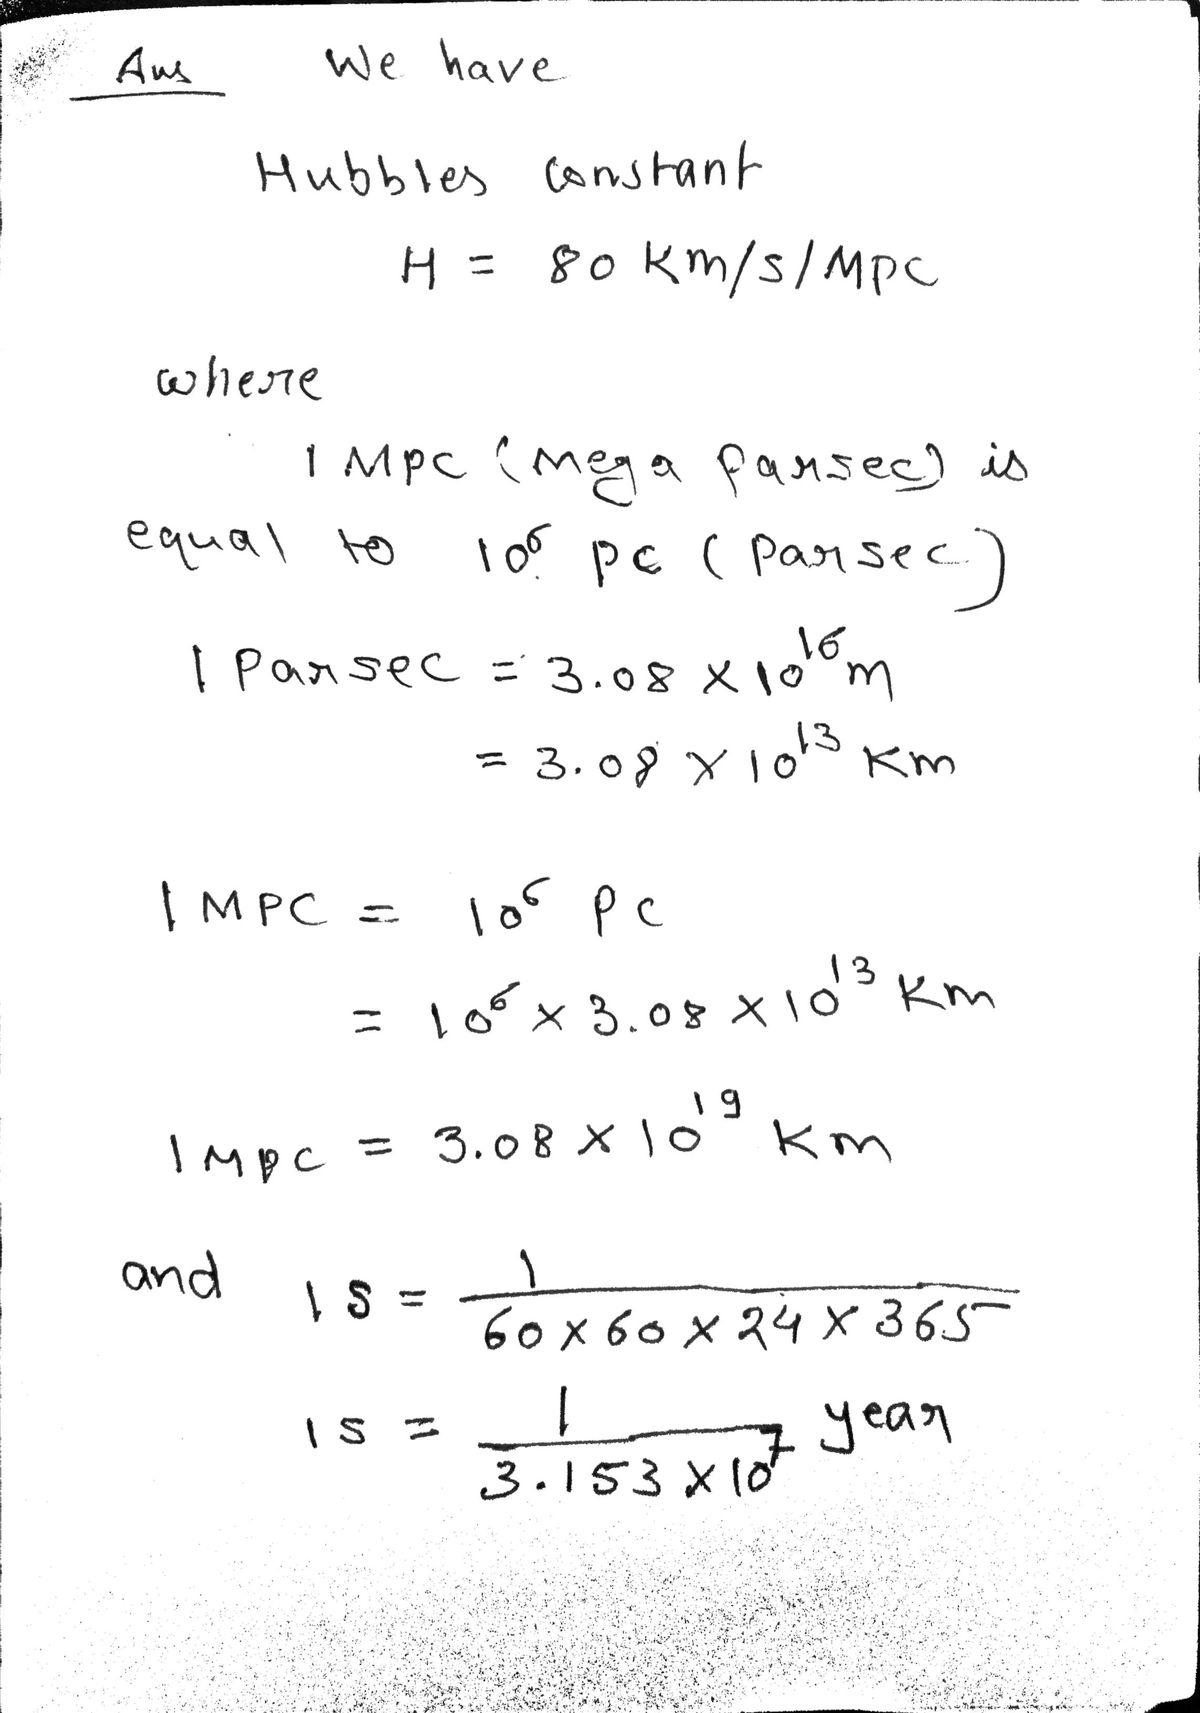 Ans We have
Hubbles constant
H = 80 Km/s/MPC
where
1 MPC (Mega Parsec) is
equal to 10⁶ pc (Parsec)
1 Parsec = 3.08 × 10¹⁶ m
= 3.08 × 10¹³ Km
1 MPC = 10⁶ PC
= 10⁶ × 3.08 × 10¹³ Km
1 MPC = 3.08 × 10¹⁹ Km
and 1 S = 1 / 60 × 60 × 24 × 365
1 S = 1 / 3.153 × 10⁷ year